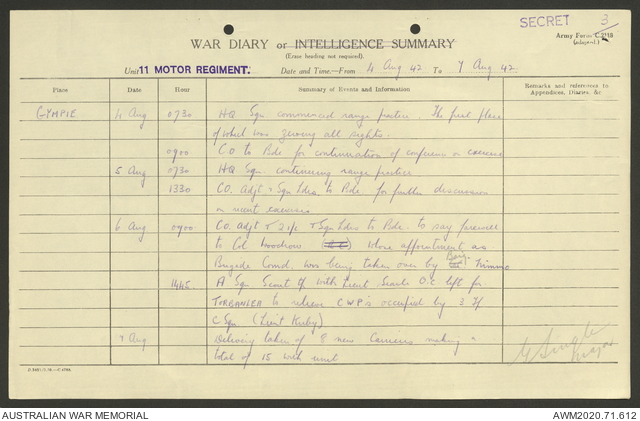 SECRET 3
WAR DIARY or INTELLIGENCE SUMMARY
Army Form C.2118
(adapted.)
(Erase heading not required).
Unit 11 MOTOR REGIMENT. Date and Time—From 4 Aug 42 To 7 Aug 42
Place Date Hour Summary of Events and Information Remarks and references to Appendices, Diaries, &c
GYMPIE 4 Aug 0730 HQ Sqn commenced range practice. The first phase
of which was zeroing all sights.
0900 CO to Bde for continuation of conference on exercise
5 Aug 0730 HQ Sqn. continuing range practice
1330 CO. Adjt & Sqn Ldrs to Bde for further discussion
on recent exercises
6 Aug 0900 CO. Adjt & 2 i/c & Sqn Ldrs to Bde. to say farewell
to Col Woodrow whose appointment as
Brigade Comd. was being taken over by Brig. Nimmo
1445 A Sqn Scout Tp with Lieut Searle O.C left for
TORBANLEA to relieve CWP's occupied by 3 Tp
C Sqn (Lieut Kirby)
7 Aug Delivery taken of 8 new Carriers making a
total of 15 with unit
Major
AUSTRALIAN WAR MEMORIAL AWM2020.71.612